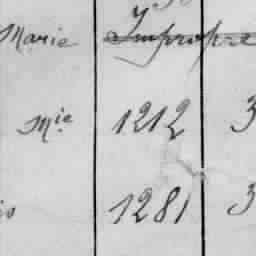 Marie Impropre
Mie 1212 3
1281 3